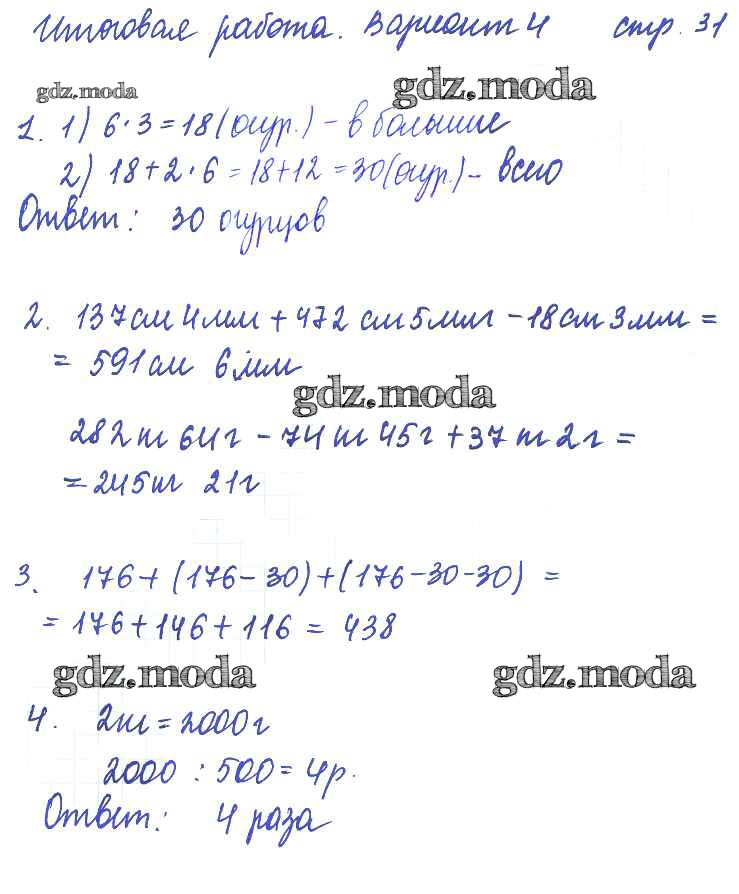 Итоговая работа. Вариант 4 стр. 31
gdz.moda gdz.moda
1. 1) 6·3=18(огур.) - в больше
2) 18+2·6=18+12=30(огур.)- всего
Ответ: 30 огурцов
2. 137см 4мм + 472 см 5мм - 18см 3мм =
= 591см 6мм
gdz.moda
282т 64г - 74т 45г + 37т 2г =
= 245т 21г
3. 176+(176-30)+(176-30-30) =
= 176+146+116 = 438
gdz.moda gdz.moda
4. 2т = 2000г
2000 : 500 = 4р.
Ответ: 4 раза